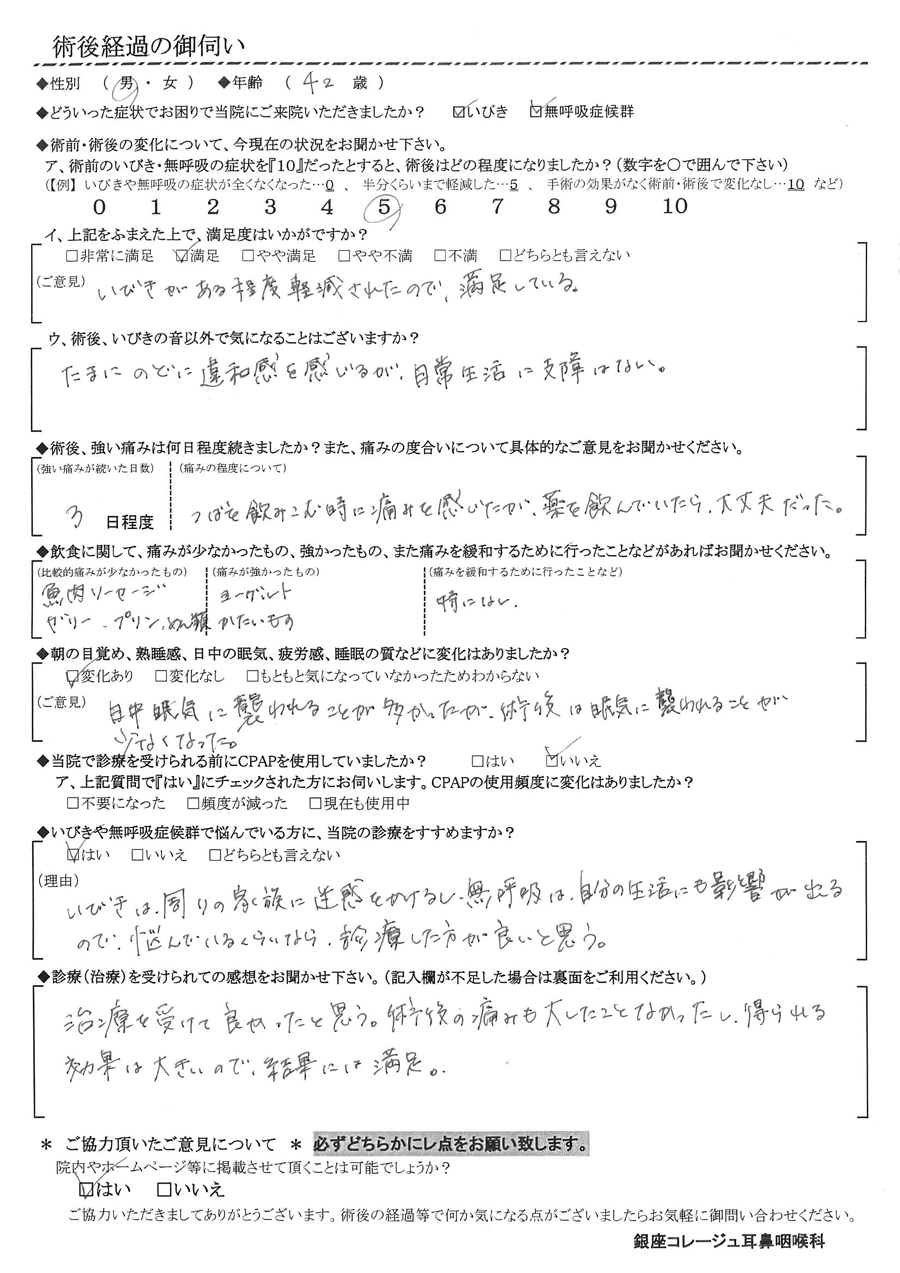 術後経過の御伺い
◆性別 （ 男 ・ 女 ） ◆年齢 （ 42 歳 ）
◆どういった症状でお困りで当院にご来院いただきましたか？ ☑いびき ☑無呼吸症候群
◆術前・術後の変化について、今現在の状況をお聞かせ下さい。
ア、術前のいびき・無呼吸の症状を『10』だったとすると、術後はどの程度になりましたか？（数字を〇で囲んで下さい）
（【例】 いびきや無呼吸の症状が全くなくなった…0 、 半分くらいまで軽減した…5 、 手術の効果がなく術前・術後で変化なし…10 など）
0 1 2 3 4 5 6 7 8 9 10
イ、上記をふまえた上で、満足度はいかがですか？
□非常に満足 ☑満足 □やや満足 □やや不満 □不満 □どちらとも言えない
（ご意見） いびきがある程度軽減されたので、満足している。
ウ、術後、いびきの音以外で気になることはございますか？
たまにのどに違和感を感じるが、日常生活に支障はない。
◆術後、強い痛みは何日程度続きましたか？また、痛みの度合いについて具体的なご意見をお聞かせください。
（強い痛みが続いた日数） （痛みの程度について）
3 日程度 つばを飲みこむ時に痛みを感じたが、薬を飲んでいたら、大丈夫だった。
◆飲食に関して、痛みが少なかったもの、強かったもの、また痛みを緩和するために行ったことなどがあればお聞かせください。
（比較的痛みが少なかったもの） （痛みが強かったもの） （痛みを緩和するために行ったことなど）
魚肉ソーセージ ヨーグルト 特になし.
ゼリー、プリン、めん類 かたいもの
◆朝の目覚め、熟睡感、日中の眠気、疲労感、睡眠の質などに変化はありましたか？
☑変化あり □変化なし □もともと気になっていなかったためわからない
（ご意見） 日中眠気に襲われることが多かったが、術後は眠気に襲われることが
少なくなった。
◆当院で診療を受けられる前にCPAPを使用していましたか？ □はい ☑いいえ
ア、上記質問で『はい』にチェックされた方にお伺いします。CPAPの使用頻度に変化はありましたか？
□不要になった □頻度が減った □現在も使用中
◆いびきや無呼吸症候群で悩んでいる方に、当院の診療をすすめますか？
☑はい □いいえ □どちらとも言えない
（理由）
いびきは、周りの家族に迷惑をかけるし、無呼吸は、自分の生活にも影響が出る
ので、悩んでいるくらいなら、診療した方が良いと思う。
◆診療（治療）を受けられての感想をお聞かせ下さい。（記入欄が不足した場合は裏面をご利用ください。）
治療を受けて良かったと思う。術後の痛みも大したことなかったし、得られる
効果は大きいので、結果には満足。
＊ ご協力頂いたご意見について ＊ 必ずどちらかにレ点をお願い致します。
院内やホームページ等に掲載させて頂くことは可能でしょうか？
☑はい □いいえ
ご協力いただきましてありがとうございます。術後の経過等で何か気になる点がございましたらお気軽に御問い合わせください。
銀座コレージュ耳鼻咽喉科